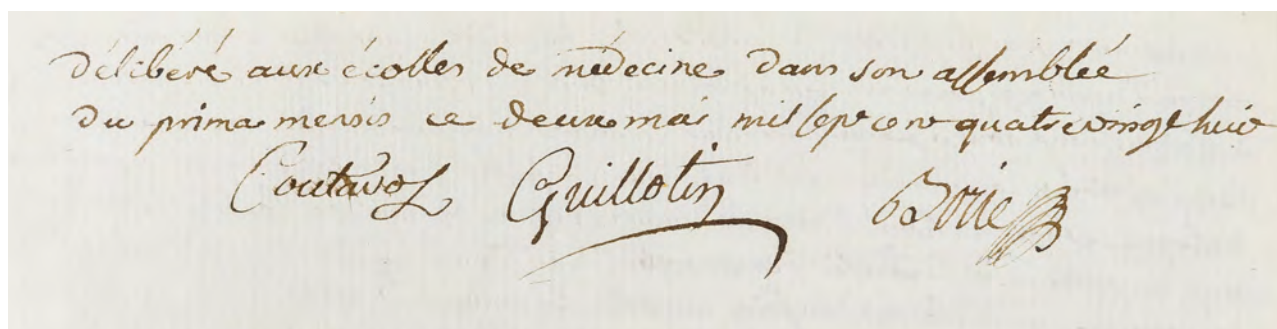 délibéré aux écolles de médecine dans son assemblée
du prima mensis ce deux mai mil sept cent quatre vingt huit
Coutavoz Guillotin Borie